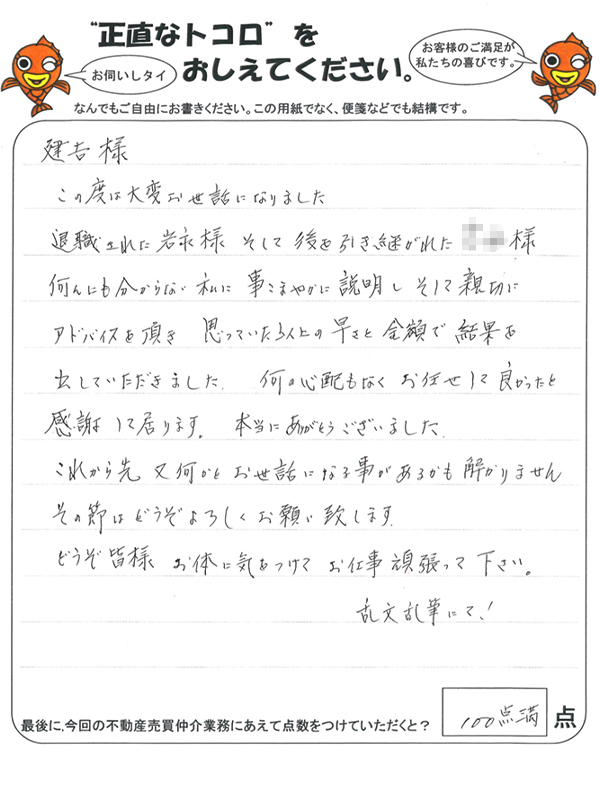 “正直なトコロ”を
おしえてください。
お伺いしタイ
お客様のご満足が
私たちの喜びです。
なんでもご自由にお書きください。この用紙でなく、便箋などでも結構です。
建吉様
この度は大変お世話になりました
退職された岩永様 そして後を引き継がれた 様
何んにも分からない私に事こまやかに説明しそして親切に
アドバイスを頂き 思っていた以上の早さと金額で結果を
出していただきました。 何の心配もなくお任せして良かったと
感謝して居ります。 本当にありがとうございました。
これから先 又何かとお世話になる事があるかも解かりません
その節はどうぞよろしくお願い致します。
どうぞ皆様 お体に気をつけてお仕事頑張って下さい。
乱文乱筆にて!
最後に、今回の不動産売買仲介業務にあえて点数をつけていただくと? 100点満 点